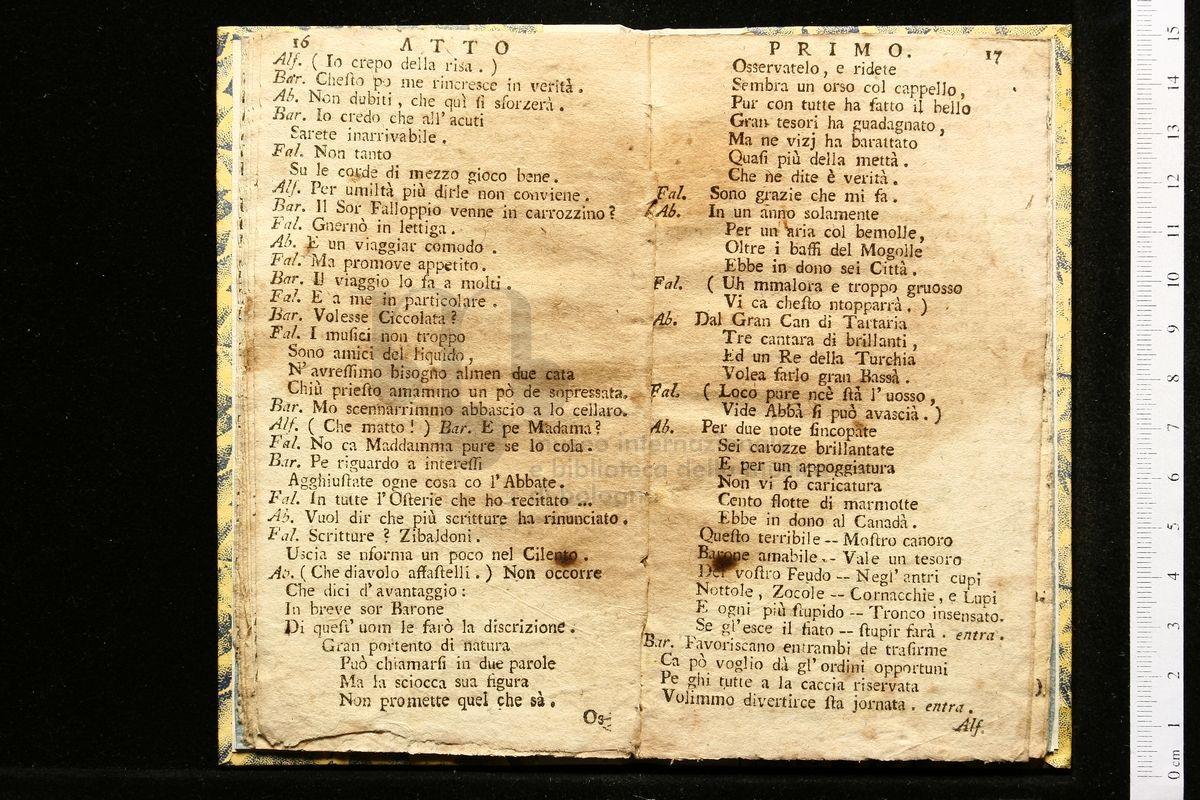 16 ATTO
Alf. ( Io crepo della risa . )
Bar. Chesto po me rincresce in verità .
Ab. Non dubiti , che quì si sforzerà .
Bar. Io credo che all' acuti
Sarete inarrivabile .
Fal. Non tanto
Su le corde di mezzo gioco bene .
Alf. Per umiltà più dirle non conviene .
Bar. Il Sor Falloppio venne in carrozzino ?
Fal. Gnernò in lettiga .
Ab. È un viaggiar comodo .
Fal. Ma promove appetito .
Bar. Il viaggio lo fa a molti .
Fal. E a me in particolare .
Bar. Volesse Ciccolata ?
Fal. I musici non troppo
Sono amici del liquido ,
N' avressimo bisogno almen due cata
Chiù priesto amammo un pò de sopressata.
Bar. Mo scennarrimmo abbascio a lo cellaro.
Alf. ( Che matto ! ) Bar. E pe Madama ?
Fal. No ca Maddamma pure se lo cola .
Bar. Pe riguardo a interessi
Agghiustate ogne cosa co l' Abbate .
Fal. In tutte l' Osterie che ho recitato ...
Ab. Vuol dir che più scritture ha rinunciato .
Fal. Scritture ? Zibaldoni .
Uscia se nforma un poco nel Cilento .
Ab. ( Che diavolo affastelli . ) Non occorre
Che dici d' avantaggio :
In breve sor Barone
Di quest' uom le farò la discrizione .
Gran portento di natura
Può chiamarsi in due parole
Ma la sciocca sua figura
Non promette quel che sà .
Os-
PRIMO. 17
Osservatelo , e ridete
Sembra un orso col cappello ,
Pur con tutte ha fatto il bello
Gran tesori ha guadagnato ,
Ma ne vizj ha barattato
Quasi più della mettà .
Che ne dite è verità .
Fal. Sono grazie che mi fa .
Ab. In un anno solamente
Per un' aria col bemolle ,
Oltre i baffi del Mogolle
Ebbe in dono sei Città .
Fal. ( Uh mmalora e troppo gruosso
Vi ca chesto ntopparrà . )
Ab. Dal Gran Can di Tartaria
Tre cantara di brillanti ,
Ed un Re della Turchia
Volea farlo gran Bassà .
Fal. ( Loco pure ncè stà l' uosso ,
Vide Abbà si può avascià . )
Ab. Per due note sincopate
Sei carozze brillantate
E per un appoggiatura
Non vi fo caricatura
Cento flotte di marmotte
Ebbe in dono al Canadà .
Questo terribile -- Mostro canoro
Barone amabile -- Vale un tesoro
Del vostro Feudo -- Negl' antri cupi
Nottole , Zocole -- Cornacchie , e Lupi
E ogni più stupido -- Tronco insensato.
Se gl' esce il fiato -- stupir farà . entra .
Bar. Favoriscano entrambi de trasirme
Ca pò voglio dà gl' ordini opportuni
Pe ghi tutte a la caccia riservata
Volimmo divertirce sta jornata . entra .
Alf.
museo internazionale
e biblioteca della musica
bologna
0 cm 1 2 3 4 5 6 7 8 9 10 11 12 13 14 15